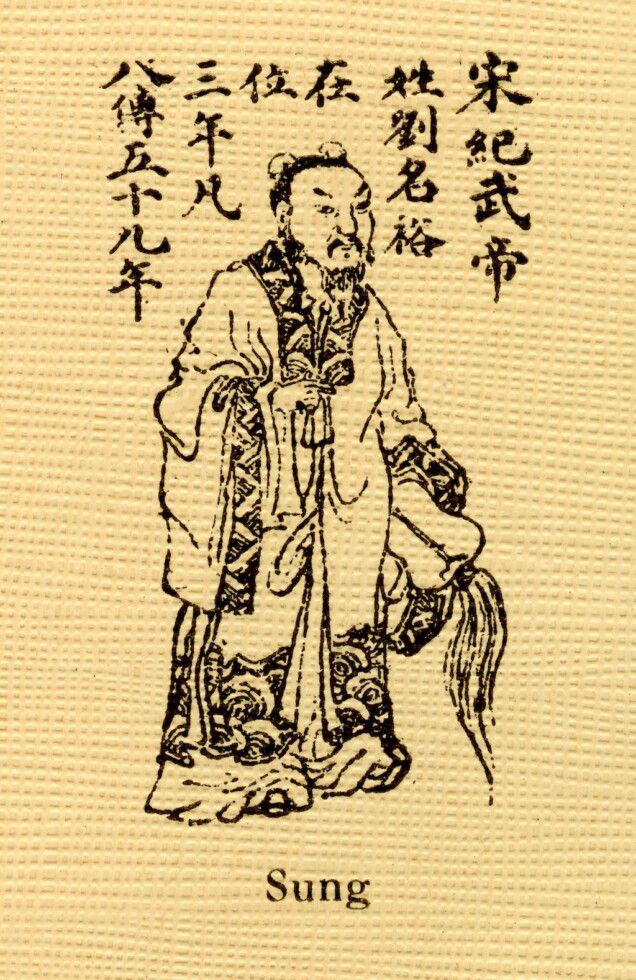 宋紀武帝
姓劉名裕
在
位
三年凡
八傳五十九年
Sung